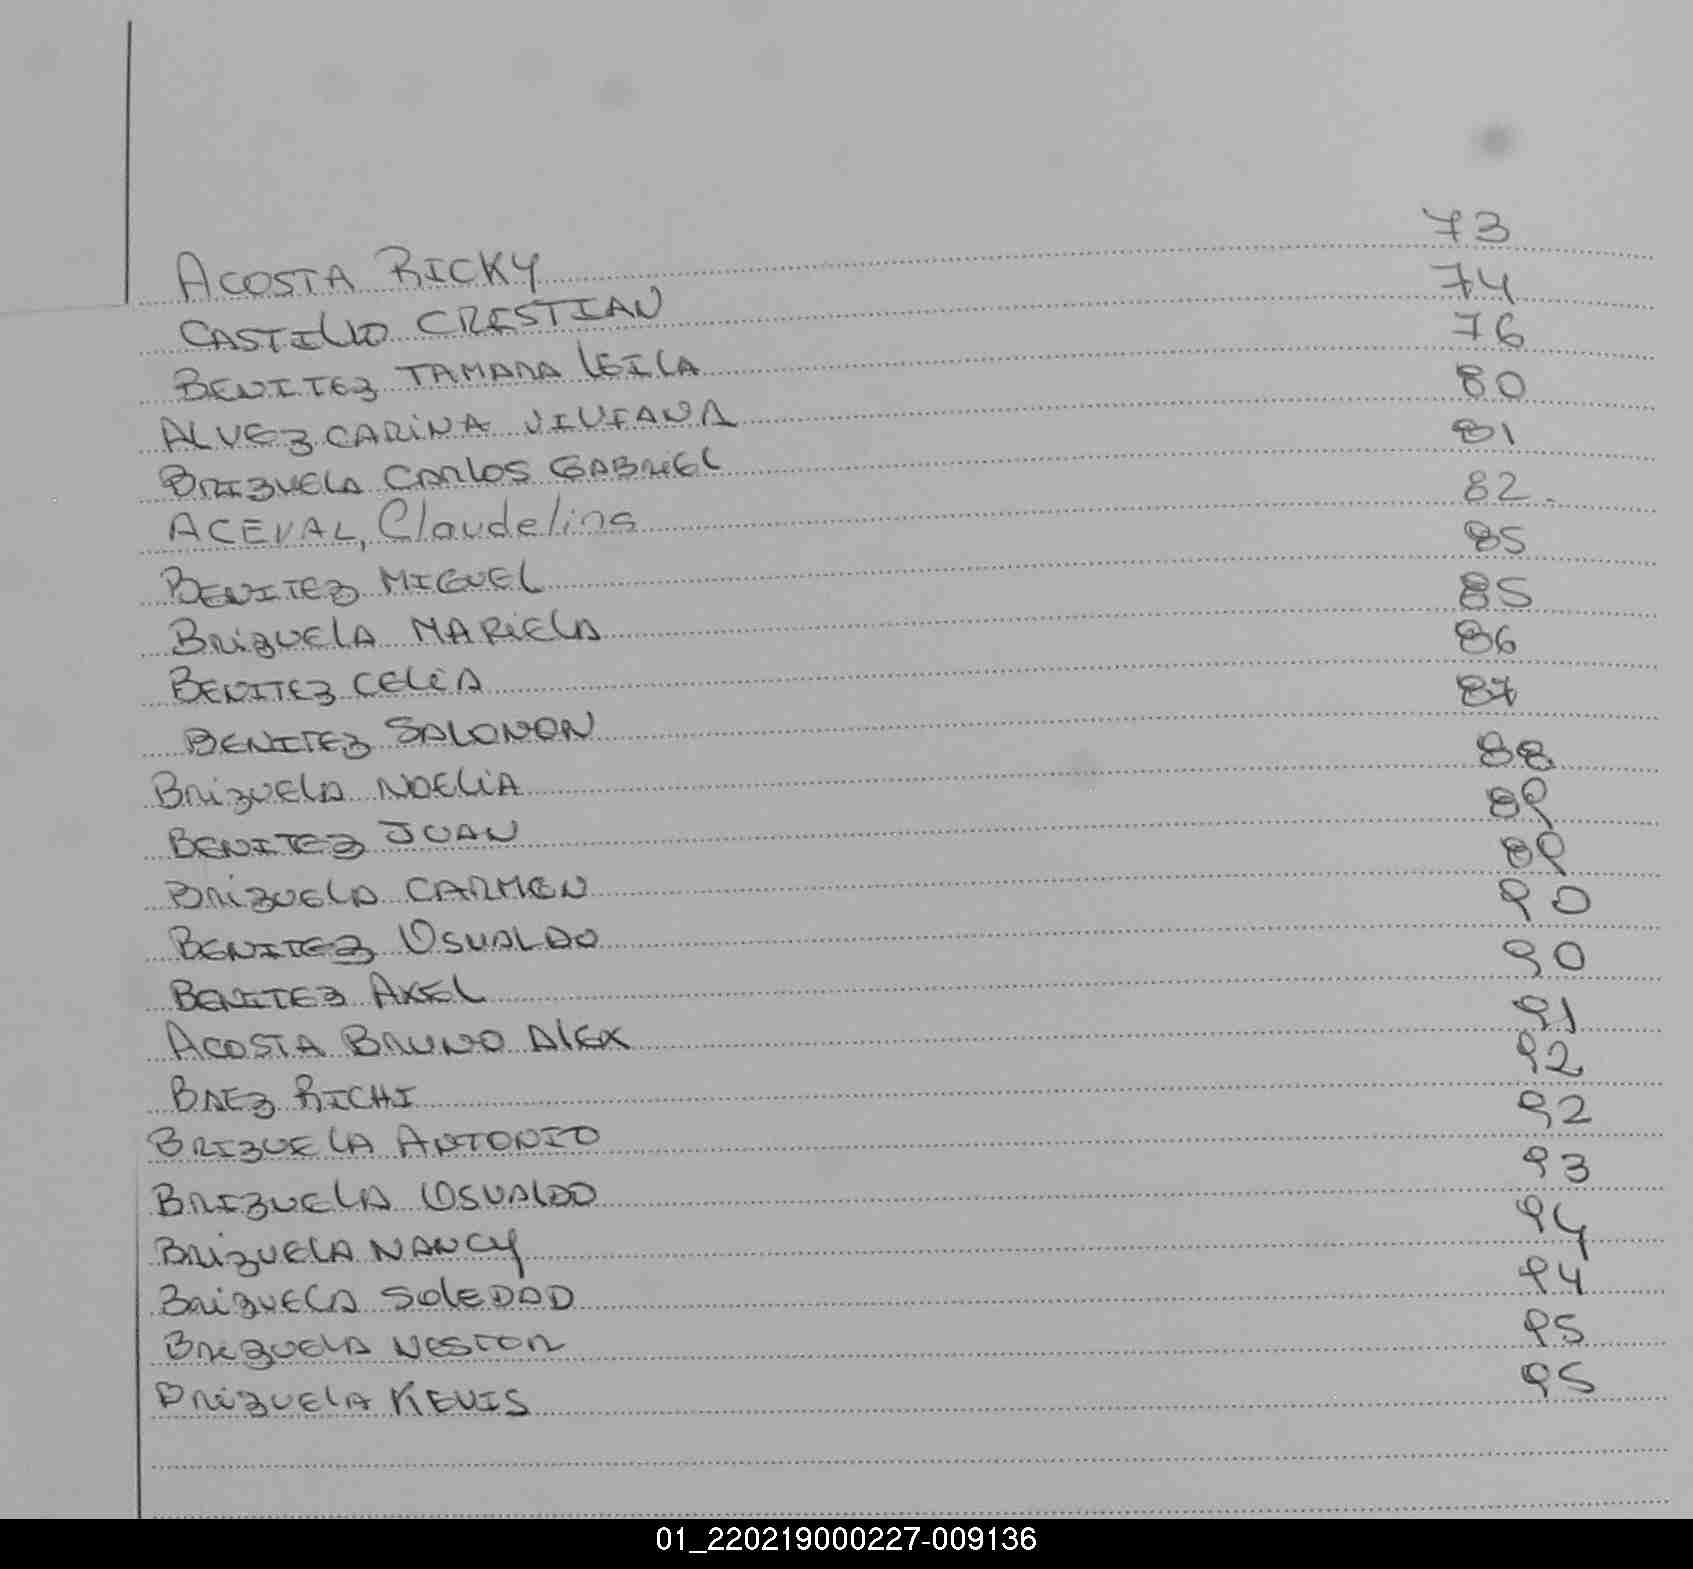 ACOSTA RICKY 73
CASTILLO CRESTIAN 74
BENITEZ TAMARA LEILA 76
ALVEZ CARINA VIVIANA 80
BRIZUELA CARLOS GABRIEL 81
ACEVAL, Claudelina 82.
BENITEZ MIGUEL 85
BRIZUELA MARIELA 85
BENITEZ CELIA 86
BENITEZ SALOMON 87
BRIZUELA NOELIA 88
BENITEZ JUAN 89
BRIZUELA CARMEN 89
BENITEZ OSVALDO 90
BENITEZ AXEL 90
ACOSTA BRUNO ALEX 91
BAEZ RICHI 92
BRIZUELA ANTONIO 92
BRIZUELA OSVALDO 93
BRIZUELA NANCY 94
BRIZUELA SOLEDAD 94
BRIZUELA NESTOR 95
BRIZUELA KEVIS 95
01_220219000227-009136